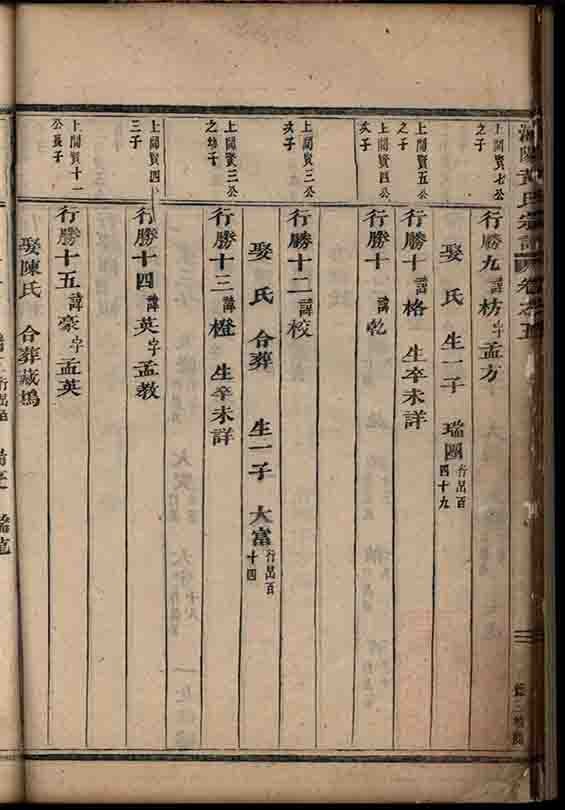 黃氏宗譜 卷之五
上閣賢七公之子
行勝九 諱枋 字孟方
娶 氏 生一子 瑞圖 行昂百四十九
上閣賢五公之子
行勝十 諱格 生卒未詳
上閣賢四公次子
行勝十一 諱
上閣賢三公次子
行勝十二 諱校
娶 氏 合葬 生一子 大富 行昂百十四
上閣賢三公之幼子
行勝十三 諱橙 生卒未詳
上閣賢四公三子
行勝十四 諱英 字孟教
上閣賢十一公長子
行勝十五 諱豪 字孟英
娶陳氏 合葬藏塢